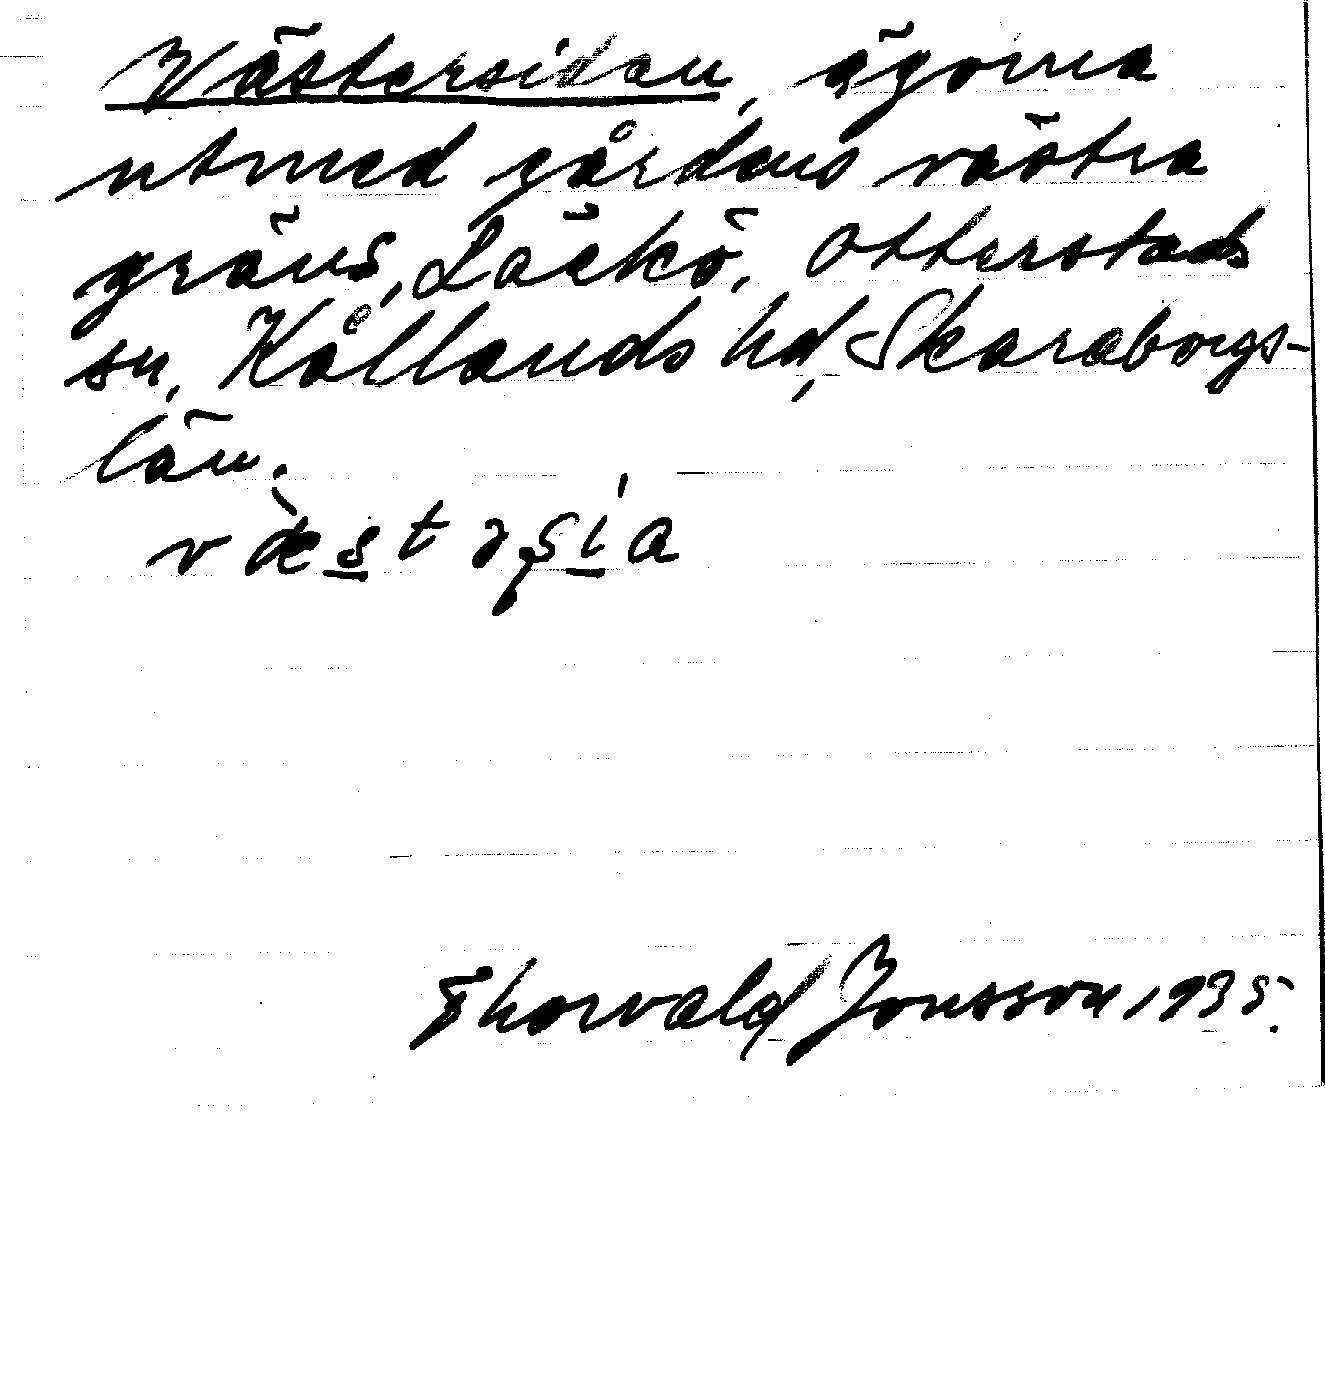 Västersidan, ägorna
utmed gårdens västra
gräns, Läckö, Otterstads
sn, Kållands hd, Skaraborgs-
län.
væ̀stəʂía
Thorvald Jonsson 1935.